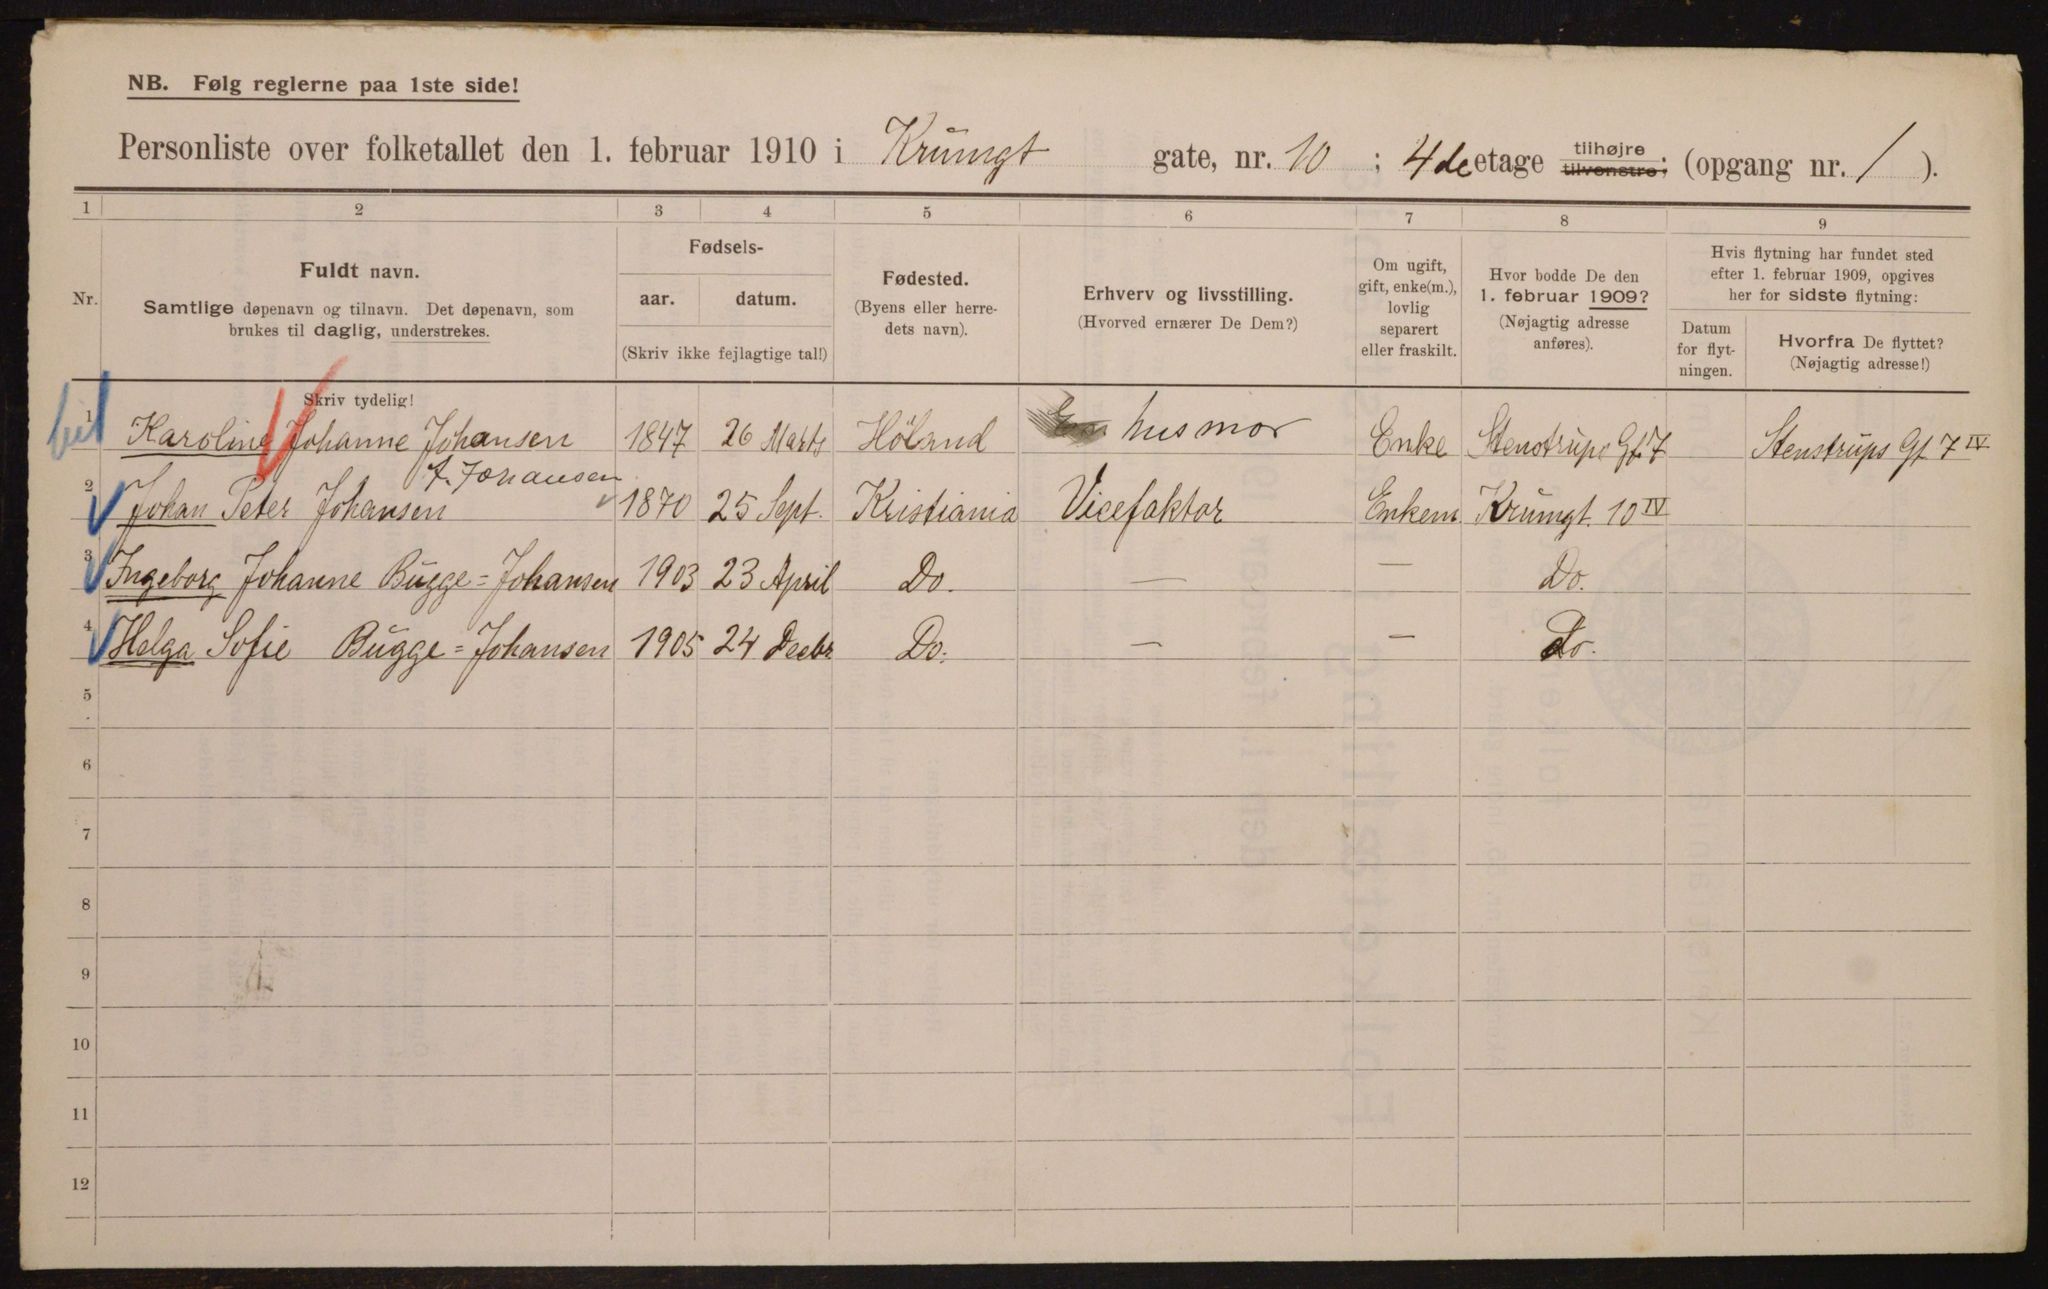 NB. Følg reglerne paa 1ste side!
Personliste over folketallet den 1. februar 1910 i Krumgt gate, nr. 10 ; 4de etage tilhøjre tilvenstre; (opgang nr. 1 ).
1 2 3 4 5 6 7 8 9
Nr.
Fuldt navn.
Samtlige døpenavn og tilnavn. Det døpenavn, som
brukes til daglig, understrekes.
Skriv tydelig!
Fødsels-
aar. datum.
(Skriv ikke fejlagtige tal!)
Fødested.
(Byens eller herre-
dets navn).
Erhverv og livsstilling.
(Hvorved ernærer De Dem?)
Om ugift,
gift, enke(m.),
lovlig
separert
eller fraskilt.
Hvor bodde De den
1. februar 1909?
(Nøjagtig adresse
anføres).
Hvis flytning har fundet sted
efter 1. februar 1909, opgives
her for sidste flytning:
Datum
for flyt-
ningen.
Hvorfra De flyttet?
(Nøjagtig adresse!)
1 Karoline Johanne Johansen 1847 26 Marts Höland husmor Enke Stenstrups Gt. 7 Stenstrups Gt 7 IV
Johansen
2 Johan Peter Johansen 1870 25 Sept. Kristiania Vicefaktor Enkem. Krumgt. 10 IV
3 Ingeborg Johanne Bugge=Johansen 1903 23 April Do. — — Do.
4 Helga Sofie Bugge=Johansen 1905 24 Decbr Do. — — Do.
5
6
7
8
9
10
11
12